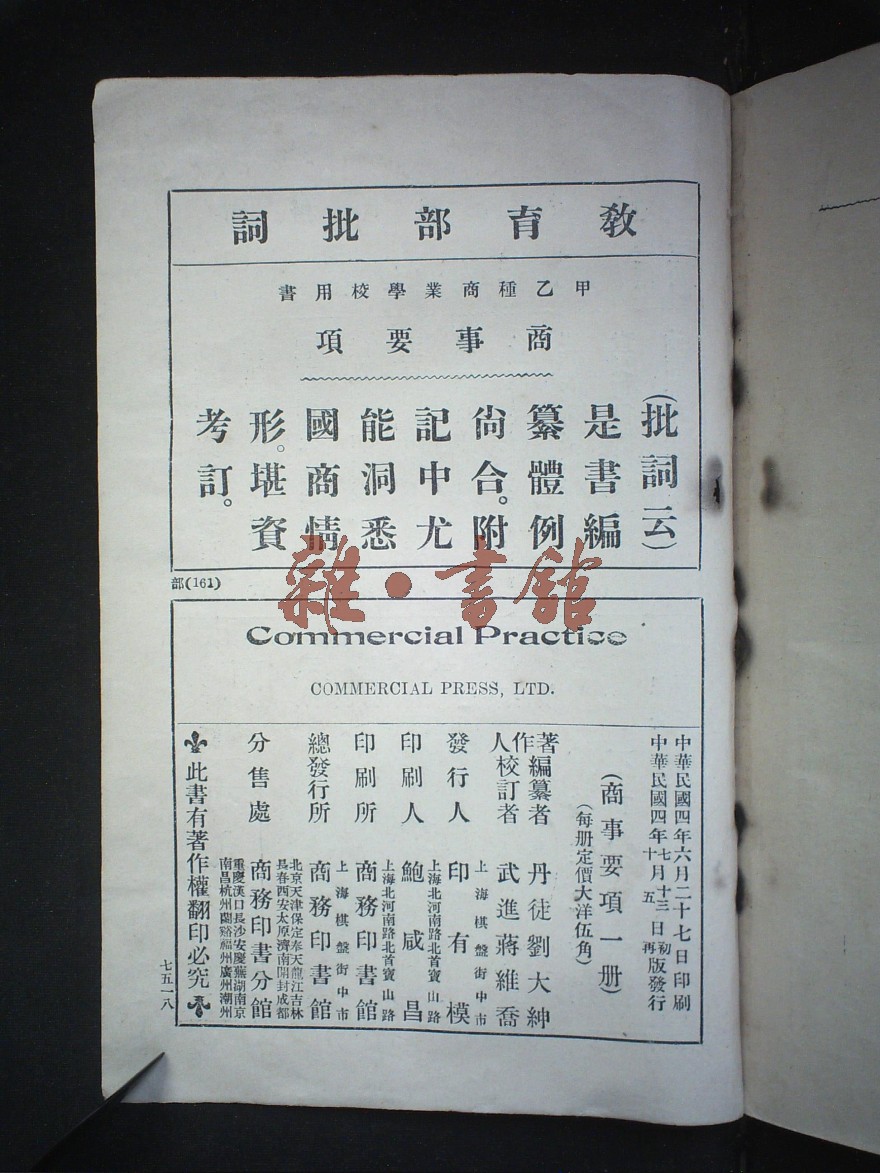 教育部批詞
甲乙種商業學校用書
商事要項
(批詞云)
是書編
纂體例
尙合。附
記中尤
能洞悉
國商情
形。堪資
考訂。
部(161)
雜·書館
Commercial Practice
COMMERCIAL PRESS, LTD.
中華民國四年六月二十七日印刷
中華民國四年七月十三日初版發行
十五再
(商事要項一册)
(每册定價大洋伍角)
著作人
編纂者 丹徒劉大紳
校訂者 武進蔣維喬
上海棋盤街中市
發行人 印有模
上海北河南路北首寶山路
印刷人 鮑咸昌
上海北河南路北首寶山路
印刷所 商務印書館
上海棋盤街中市
總發行所 商務印書館
北京天津保定奉天龍江吉林
長春西安太原濟南開封成都
分售處 商務印書分館
重慶漢口長沙安慶蕪湖南京
南昌杭州蘭谿福州廣州潮州
此書有著作權翻印必究
七五一八